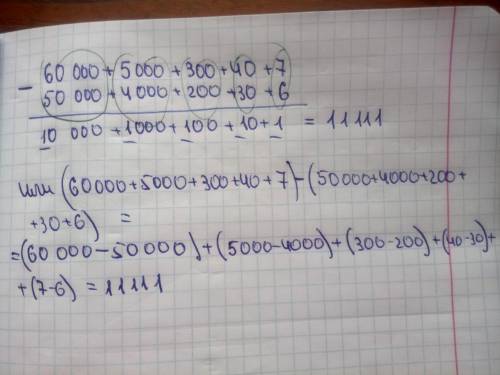 60 000 + 5000 + 300 + 40 + 7
−
50 000 + 4000 + 200 + 30 + 6
10 000 + 1000 + 100 + 10 + 1 = 11111
или (60000+5000+300+40+7)-(50000+4000+200+
+30+6) =
=(60 000-50000)+(5000-4000)+(300-200)+(40-30)+
+(7-6) = 11111